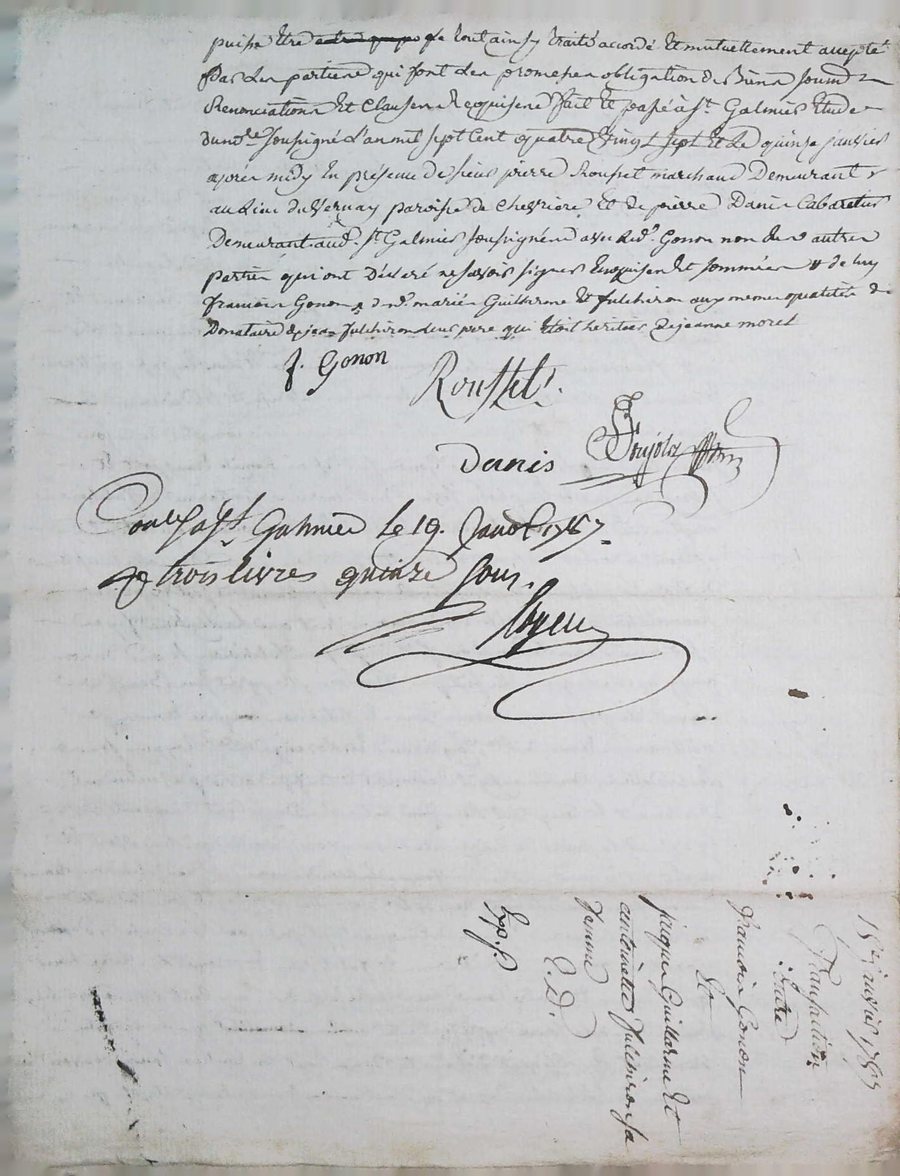 puisse Etre de tout ainsy traité accordé Et mutuellement accepté
Par les parties qui font les promesses obligation de Biens soumd
Renonciations Et Clauses Requises fait Et passé à St Galmier Etude
du nre soussigné L'an mil sept Cent quatre Vingt sept Et Le quinze janvier
après midy En présence de sieur pierre Rousset marchand Demeurant
au Lieu du Vernay paroisse de Chevriere Et de pierre Danis Cabaretier
Demeurant aud. St Galmier soussignés avec Led. Gonon non Les autres
parties qui ont Déclaré ne savoir signer Enquises Et sommées
françois Gonon mariés Guillerme Et fulchiron aux memes qualités
Donataire de jean fulchiron Leur pere qui Etoit heritier de jeanne moret
f. Gonon
Rousset.
Danis
Conlé a St. Galmier le 19. Janv 1787.
trois livres quinze sous.
15e janvier 1787
Transaction
Entre
françois Gonon
Et
jacque Guillerme Et
antoinette fulchiron sa
femme
E.D.
Exp.